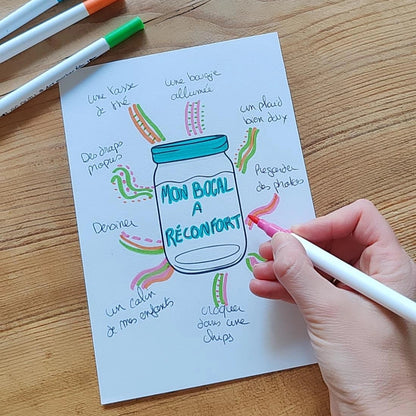 une tasse
de thé
une bougie
allumée
un plaid
bien doux
Des draps
propres
Regarder
des photos
MON BOCAL
A
RÉCONFORT
Dessiner
un câlin
de mes enfants
croquer
dans une
chips